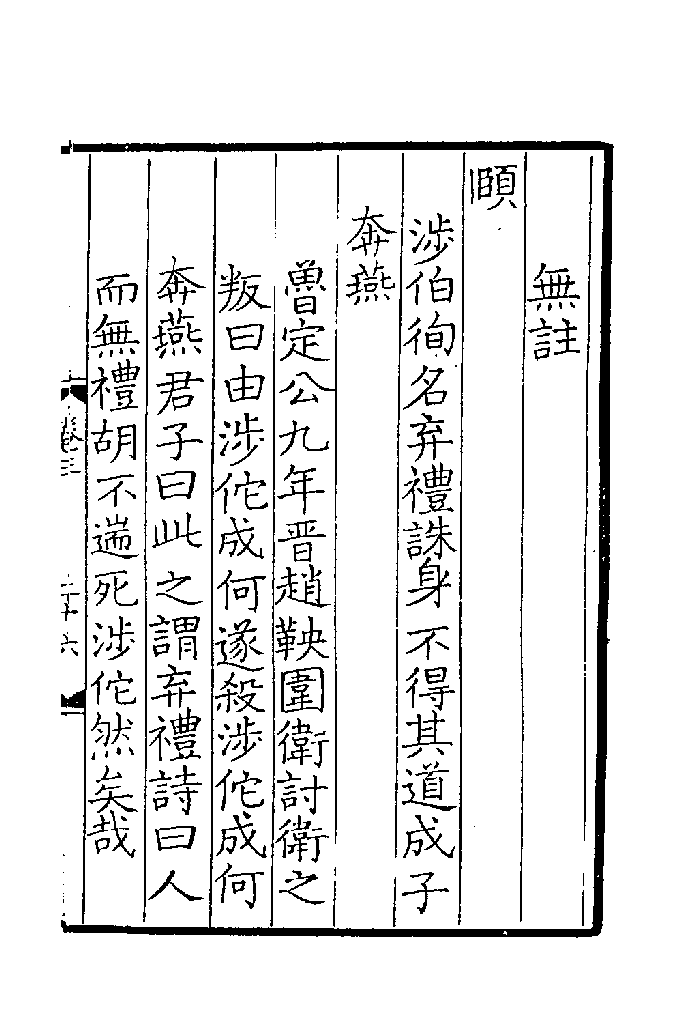 無註
頤
涉伯徇名弃禮誅身不得其道成子
奔燕
曾定公九年晋趙鞅圍衛討衛之
叛曰由涉佗成何遂殺涉佗成何
奔燕君子曰此之謂弃禮詩曰人
而無禮胡不遄死涉佗然矣哉
卷三
二十六